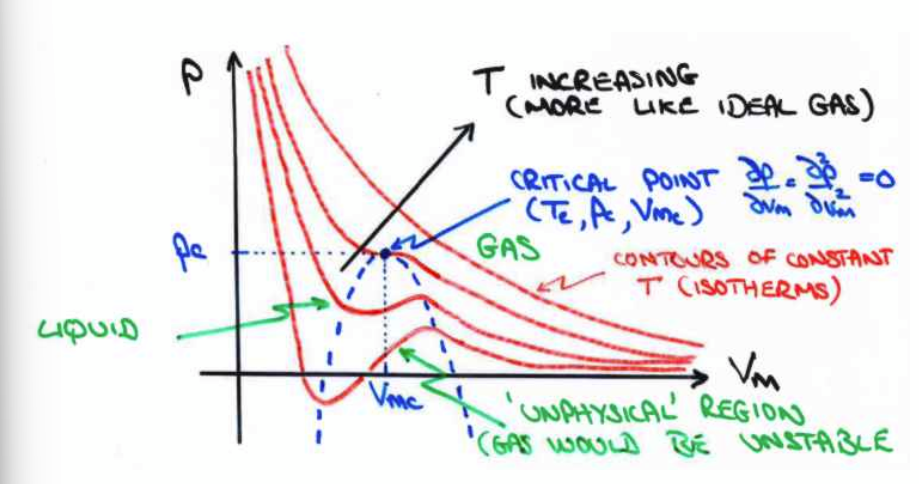 P
T INCREASING
(MORE LIKE IDEAL GAS)
CRITICAL POINT ∂p/∂Vm = ∂²p/∂Vm² = 0
(Tc, Pc, Vmc)
Pc
GAS
CONTOURS OF CONSTANT
T (ISOTHERMS)
LIQUID
Vm
Vmc
'UNPHYSICAL' REGION
(GAS WOULD BE UNSTABLE